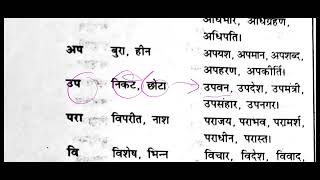 अधिभार, अधिग्रहण,
अधिपति।
अप बुरा, हीन अपयश, अपमान, अपशब्द,
अपहरण, अपकीर्ति।
उप निकट, छोटा उपवन, उपदेश, उपमंत्री,
उपसंहार, उपनगर।
परा विपरीत, नाश पराजय, पराभव, परामर्श,
पराधीन, परास्त।
वि विशेष, भिन्न विचार, विदेश, विवाद,